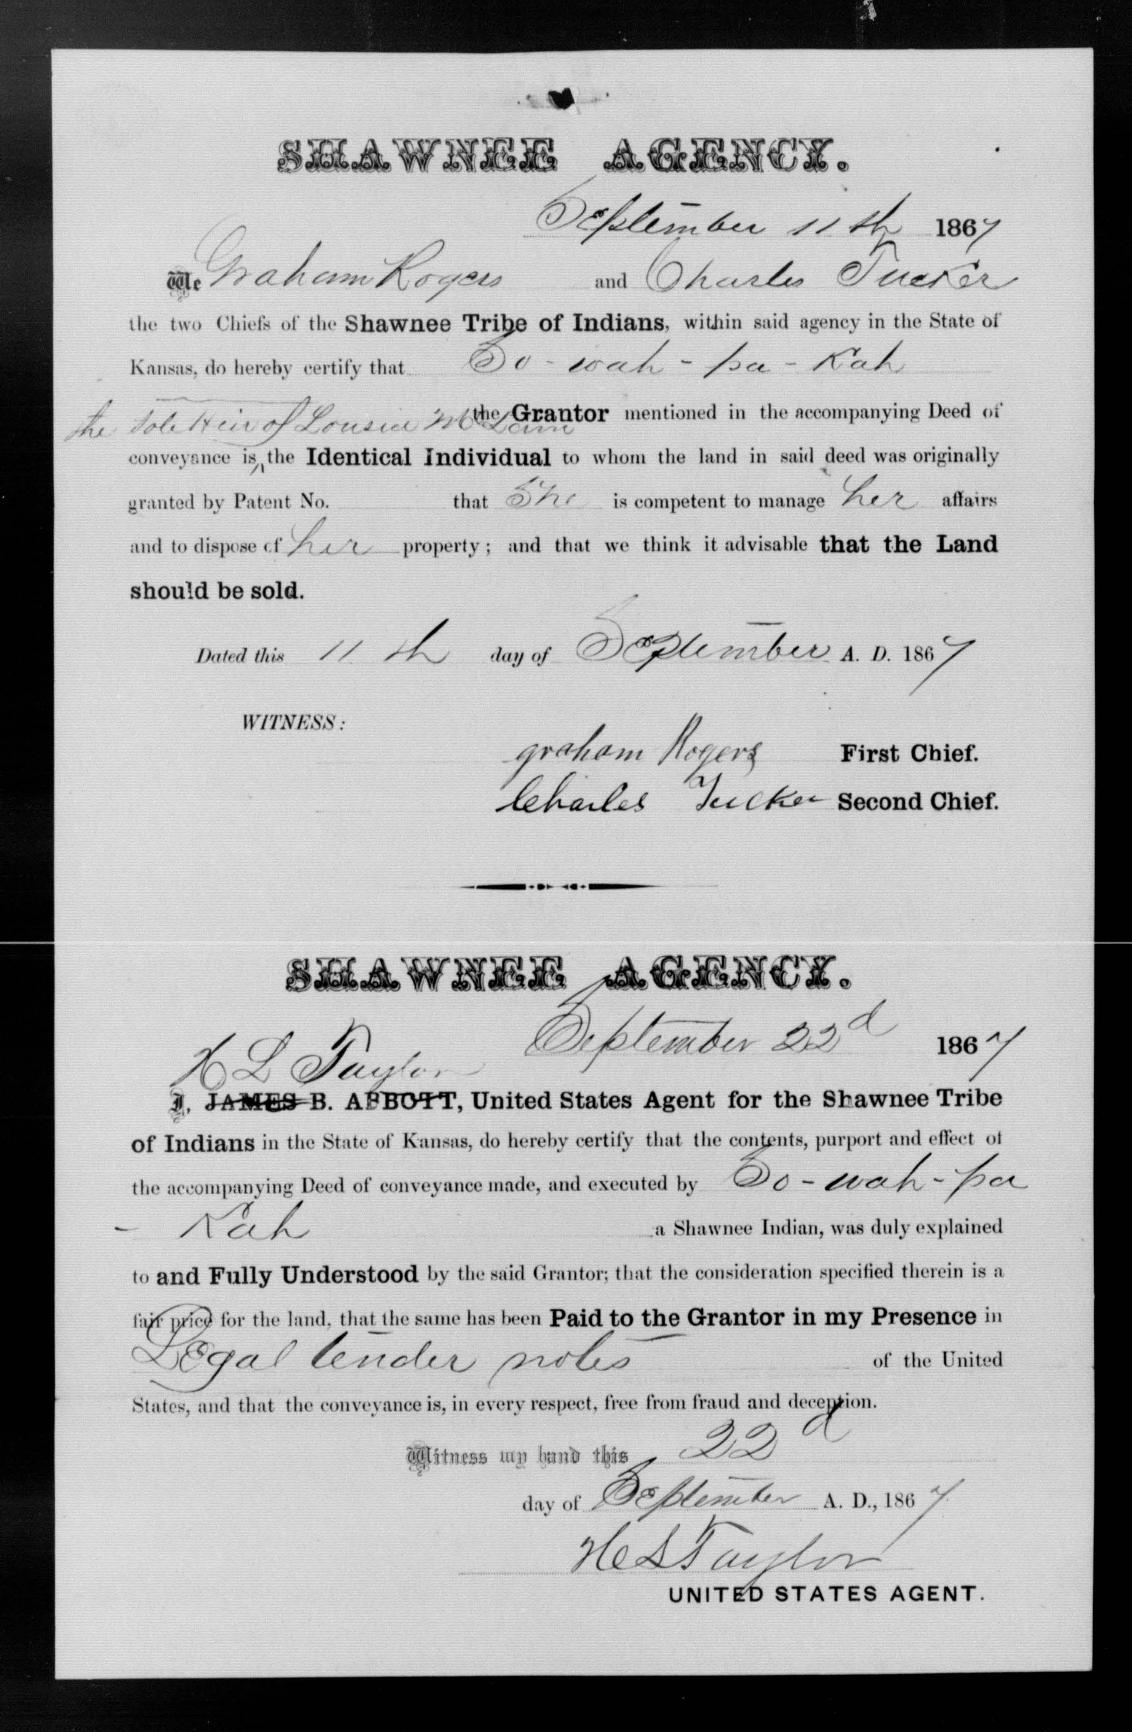 SHAWNEE AGENCY.
September 11th 1867
We Graham Rogers and Charles Tucker
the two Chiefs of the Shawnee Tribe of Indians, within said agency in the State of
Kansas, do hereby certify that So-wah-pa-Kah
the Grantor mentioned in the accompanying Deed of
the sole Heir of Lousia
conveyance is the Identical Individual to whom the land in said deed was originally
granted by Patent No. that She is competent to manage her affairs
and to dispose of her property; and that we think it advisable that the Land
should be sold.
Dated this 11th day of September A. D. 1867
WITNESS:
graham Rogers First Chief.
Charles Tucker Second Chief.
SHAWNEE AGENCY.
September 22d 1867
H L Taylor
I, JAMES B. ABBOTT, United States Agent for the Shawnee Tribe
of Indians in the State of Kansas, do hereby certify that the contents, purport and effect of
the accompanying Deed of conveyance made, and executed by So-wah-pa
- Kah a Shawnee Indian, was duly explained
to and Fully Understood by the said Grantor; that the consideration specified therein is a
fair price for the land, that the same has been Paid to the Grantor in my Presence in
Legal tender notes of the United
States, and that the conveyance is, in every respect, free from fraud and deception.
Witness my hand this 22d
day of September A. D., 1867
H L Taylor
UNITED STATES AGENT.